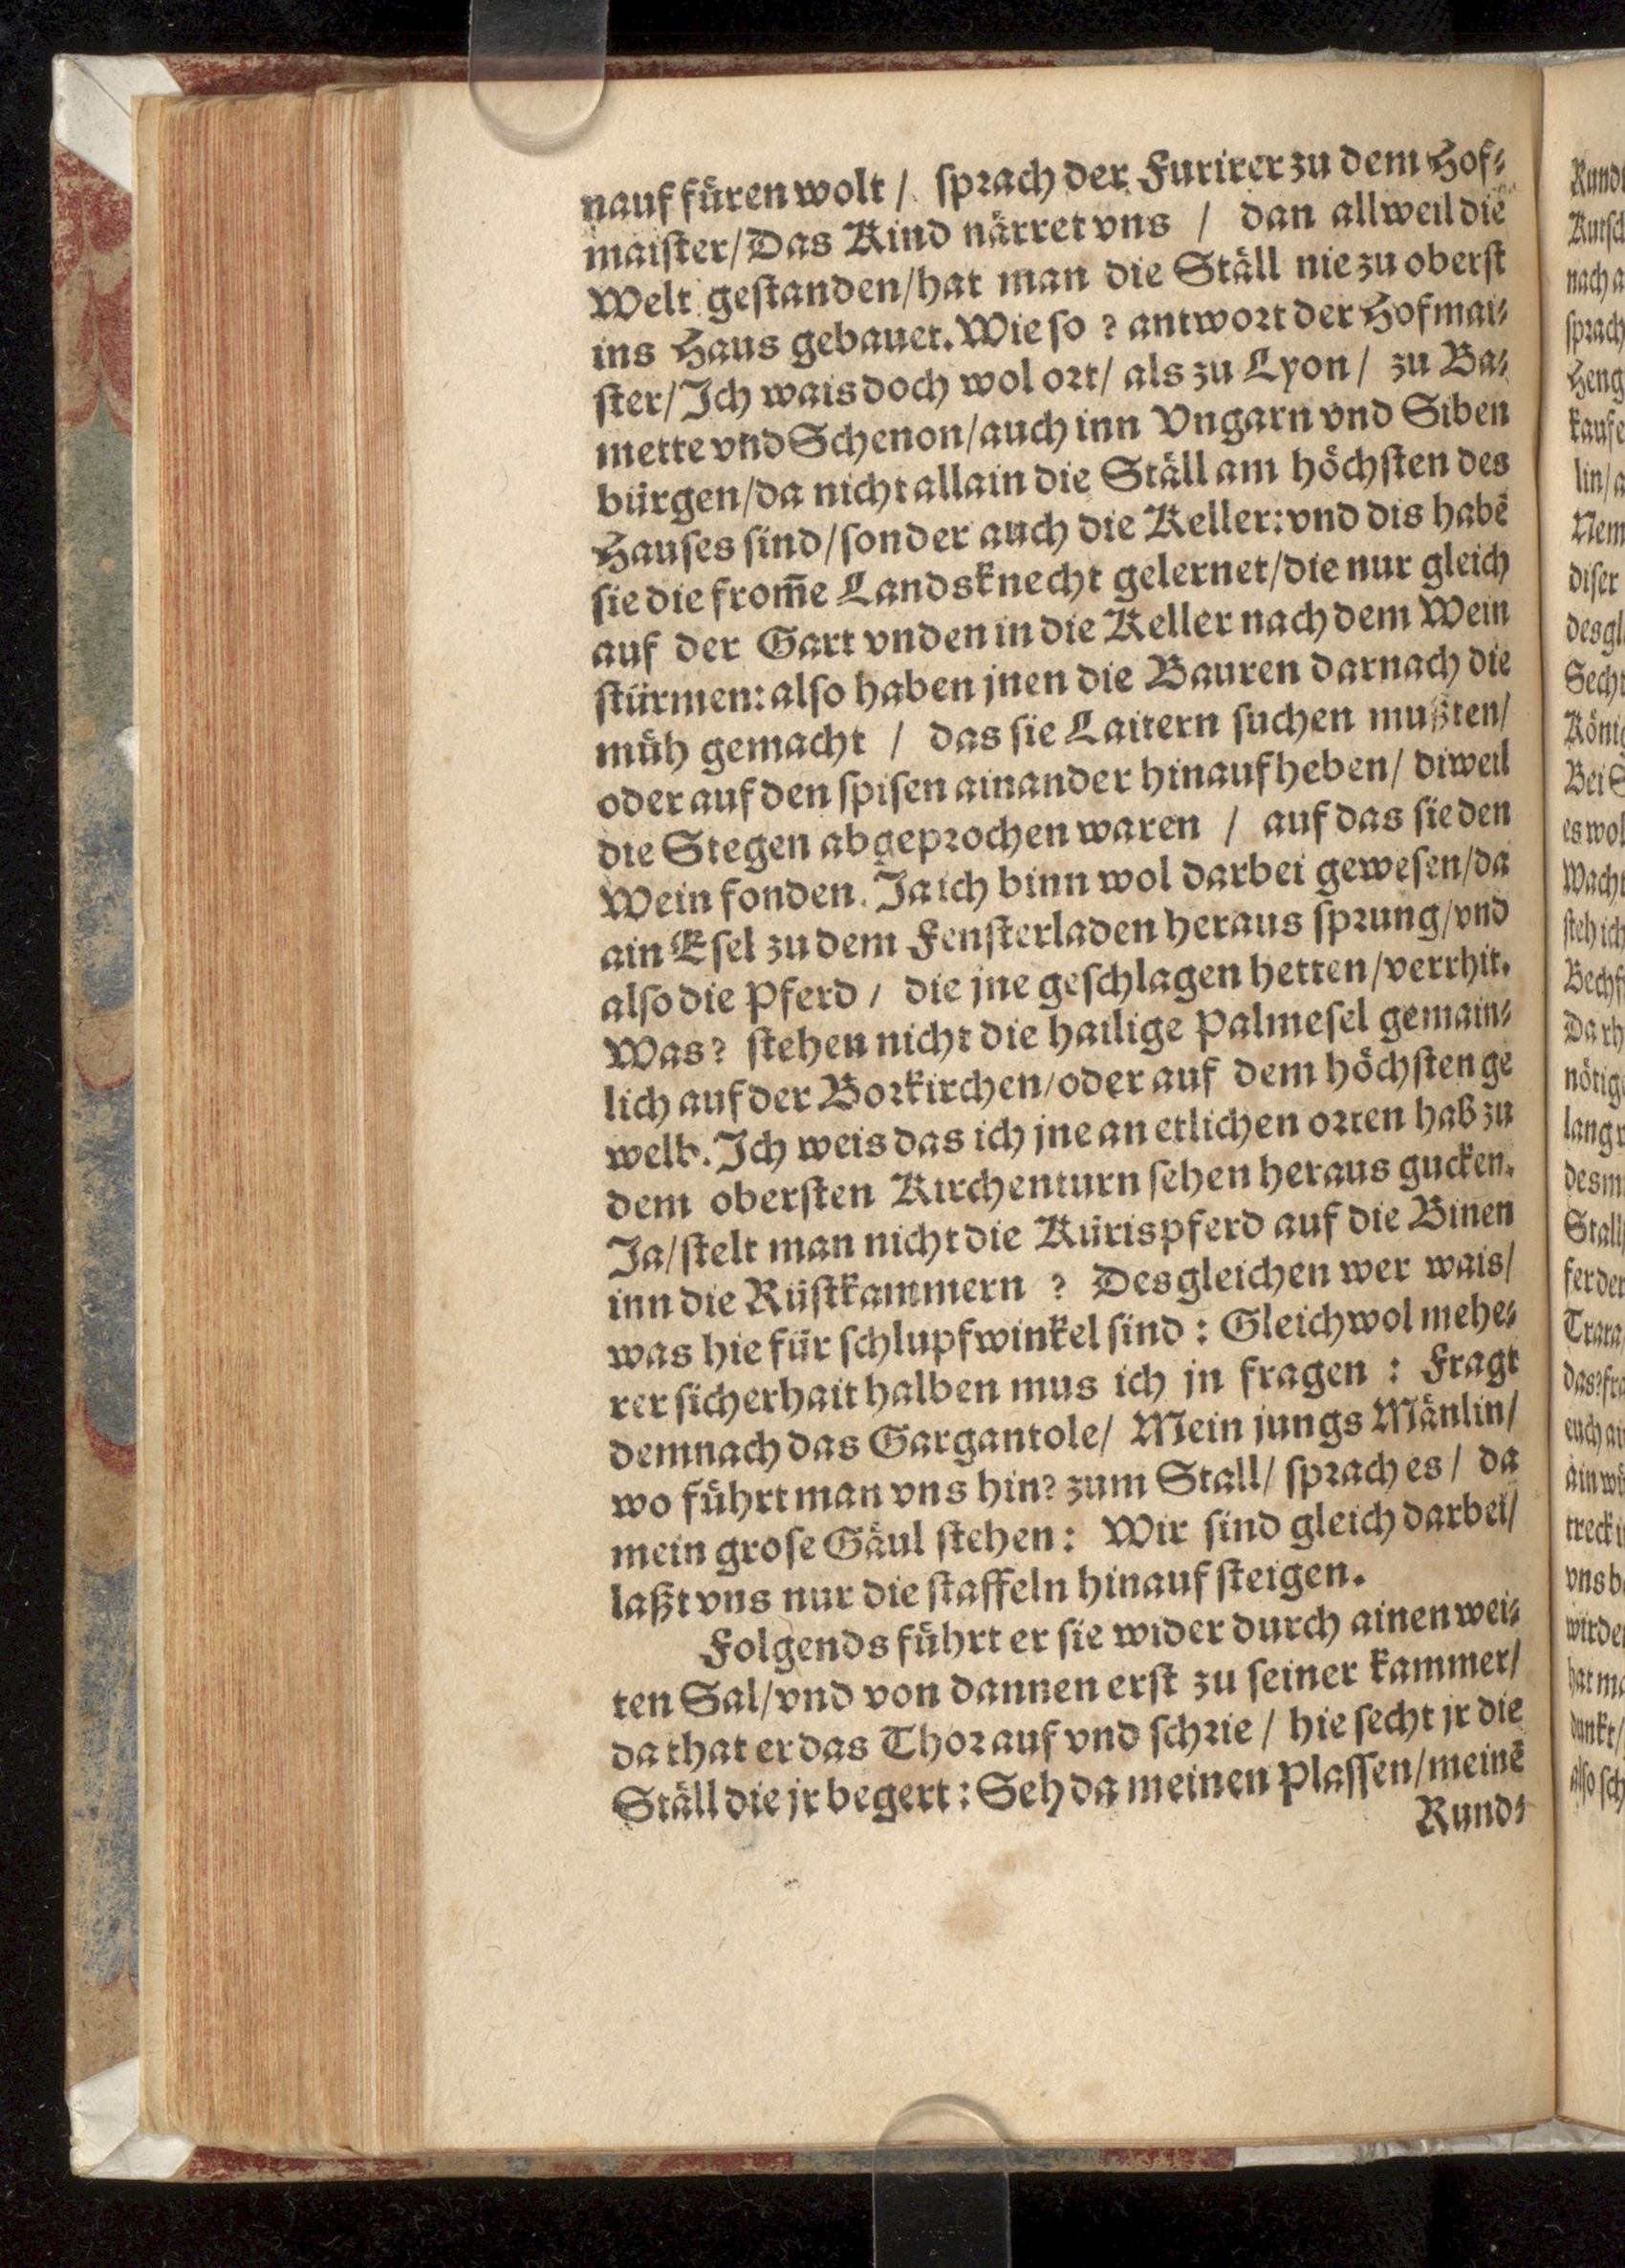 nauf füren wolt / ſprach der Furirer zu dem Hof⸗
maiſter / Das Kind närret vns / dan allweil die
Welt geſtanden / hat man die Ställ nie zu oberſt
ins Haus gebauet. Wie so ? antwort der Hofmai⸗
ſter / Jch wais doch wol ort / als zu Lyon / zu Ba⸗
mette vnd Schenon / auch inn Vngarn vnd Siben
bürgen / da nicht allain die Ställ am höchſten des
Hauſes ſind / ſonder auch die Keller: vnd dis habē
ſie die from̄e Landsknecht gelernet / die nur gleich
auf der Gart vnden in die Keller nach dem Wein
ſtürmen: alſo haben jnen die Bauren darnach die
müh gemacht / das ſie Laitern ſuchen mußten /
oder auf den ſpiſen ainander hinauf heben / diweil
die Stegen abgeprochen waren / auf das ſie den
Wein fonden. Ja ich binn wol darbei geweſen / da
ain Eſel zu dem Fenſterladen heraus ſprung / vnd
alſo die Pferd / die jne geſchlagen hetten / verrhit.
Was? ſtehen nicht die hailige Palmeſel gemain⸗
lich auf der Borkirchen / oder auf dem höchſten ge
welb. Jch weis das ich jne an etlichen orten hab zu
dem oberſten Kirchenturn ſehen heraus gucken.
Ja / ſtelt man nicht die Kürispferd auf die Binen
inn die Rüſtkammern ? Desgleichen wer wais /
was hie für ſchlupfwinkel ſind : Gleichwol mehe⸗
rer ſicherhait halben mus ich jn fragen : Fragt
demnach das Gargantole / Mein jungs Mänlin /
wo führt man vns hin? zum Stall / ſprach es / da
mein groſe Gäul ſtehen : Wir ſind gleich darbei /
laßt vns nur die ſtaffeln hinauf ſteigen.
Folgends führt er ſie wider durch ainen wei⸗
ten Sal / vnd von dannen erſt zu ſeiner kammer /
da that er das Thor auf vnd ſchrie / hie ſecht jr die
Ställ die jr begert : Seh da meinen Plaſſen / meinē
Rund⸗